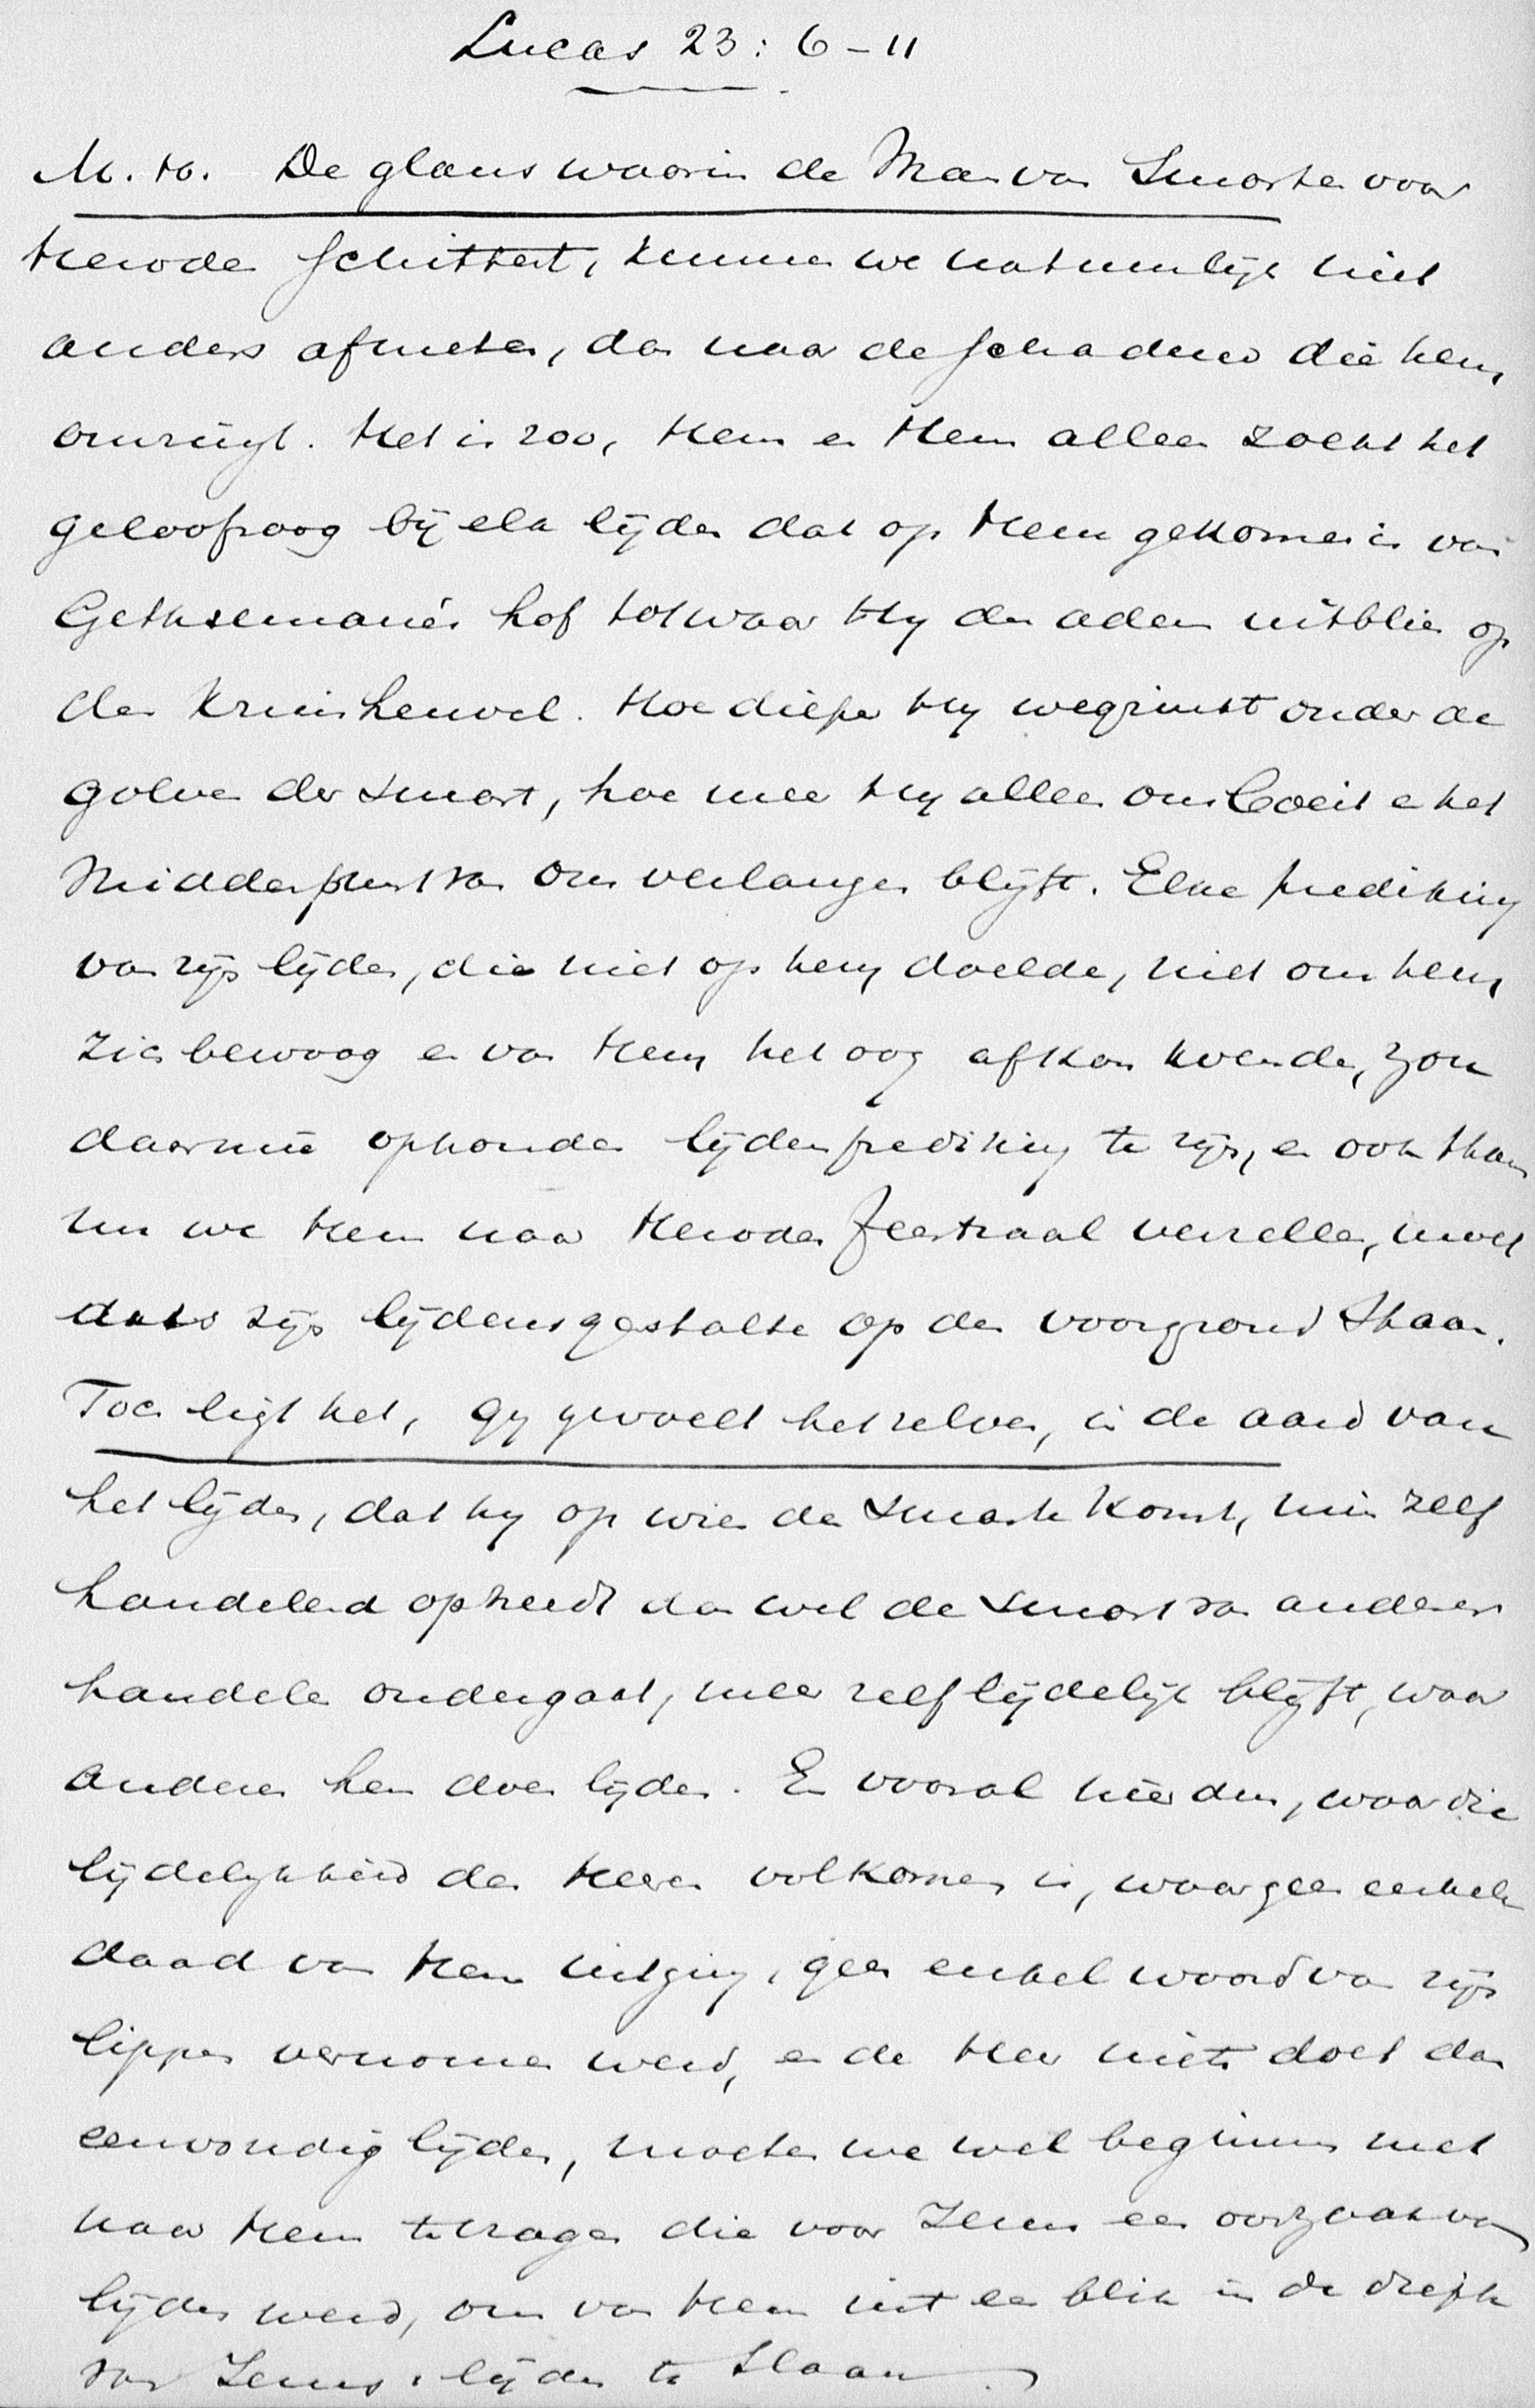 Lucas 23: 6-11
M. H. De glans waarin de Man van Smarten voor
Herodes schittert, kunnen we natuurlijk niet
anders afmeten, dan naar de schaduw die hem
omringt. Het is zoo, Hem en Hem alleen zoekt het
geloofsoog bij elk lijden dat op Hem gekomen is van
Gethsemané's hof tot waar Hij den adem uitblies op
den Kruisheuvel. Hoe dieper Hij wegzinkt onder de
golven der smart, hoe meer Hij alleen ons doelwit en het
Middenpunt van ons verlangen blijft. Elke prediking
van zijn lijden, die niet op hem doelde, niet om hem
zich bewoog en van Hem het oog afkon wenden, zou
daarmee ophouden lijdensprediking te zijn, en ook thans
nu we Hem naar Herodes feestzaal verzellen, moet
dus zijn lijdensgestalte op den voorgrond staan.
Toch ligt het, gij gevoelt het zelven, in de aard van
het lijden, dat hij op wien de smarte komt, min zelf
handelend optreedt dan wel de smart van anderer
handelen ondergaat, meer zelf lijdelijk blijft, waar
anderen hem doen lijden. En vooral hier dus, waar die
lijdelijkheid des Heeren volkomen is, waar geen enkele
daad van Hem uitging, geen enkel woord van zijn
lippen vernomen werd, en de Heer niets doet dan
eenvoudig lijden, moeten we wel beginnen met
naar Hem te vragen die voor Jezus een oorzaak van
lijden werd, om van Hem uit een blik in de diepte
van Jezus' lijden te slaan.